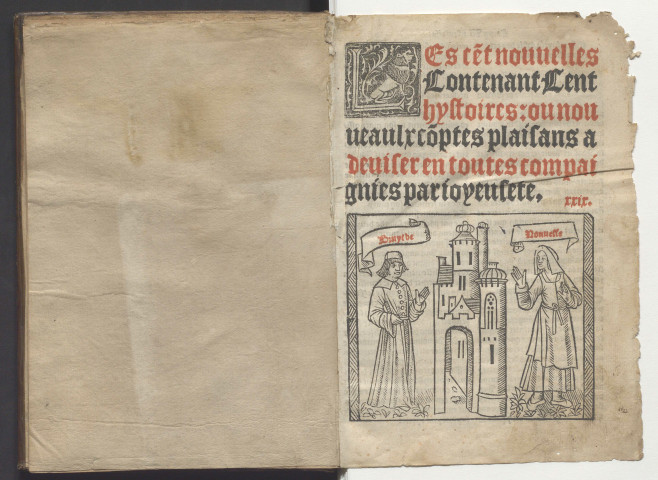 LEs cēt nouuelles
Contenant Cent
hyſtoires: ou nou
ueaulx cōptes plaiſans a
deuiſer en toutes compai
gnies par ioyeuſete.
xxix.
Nonneſſe